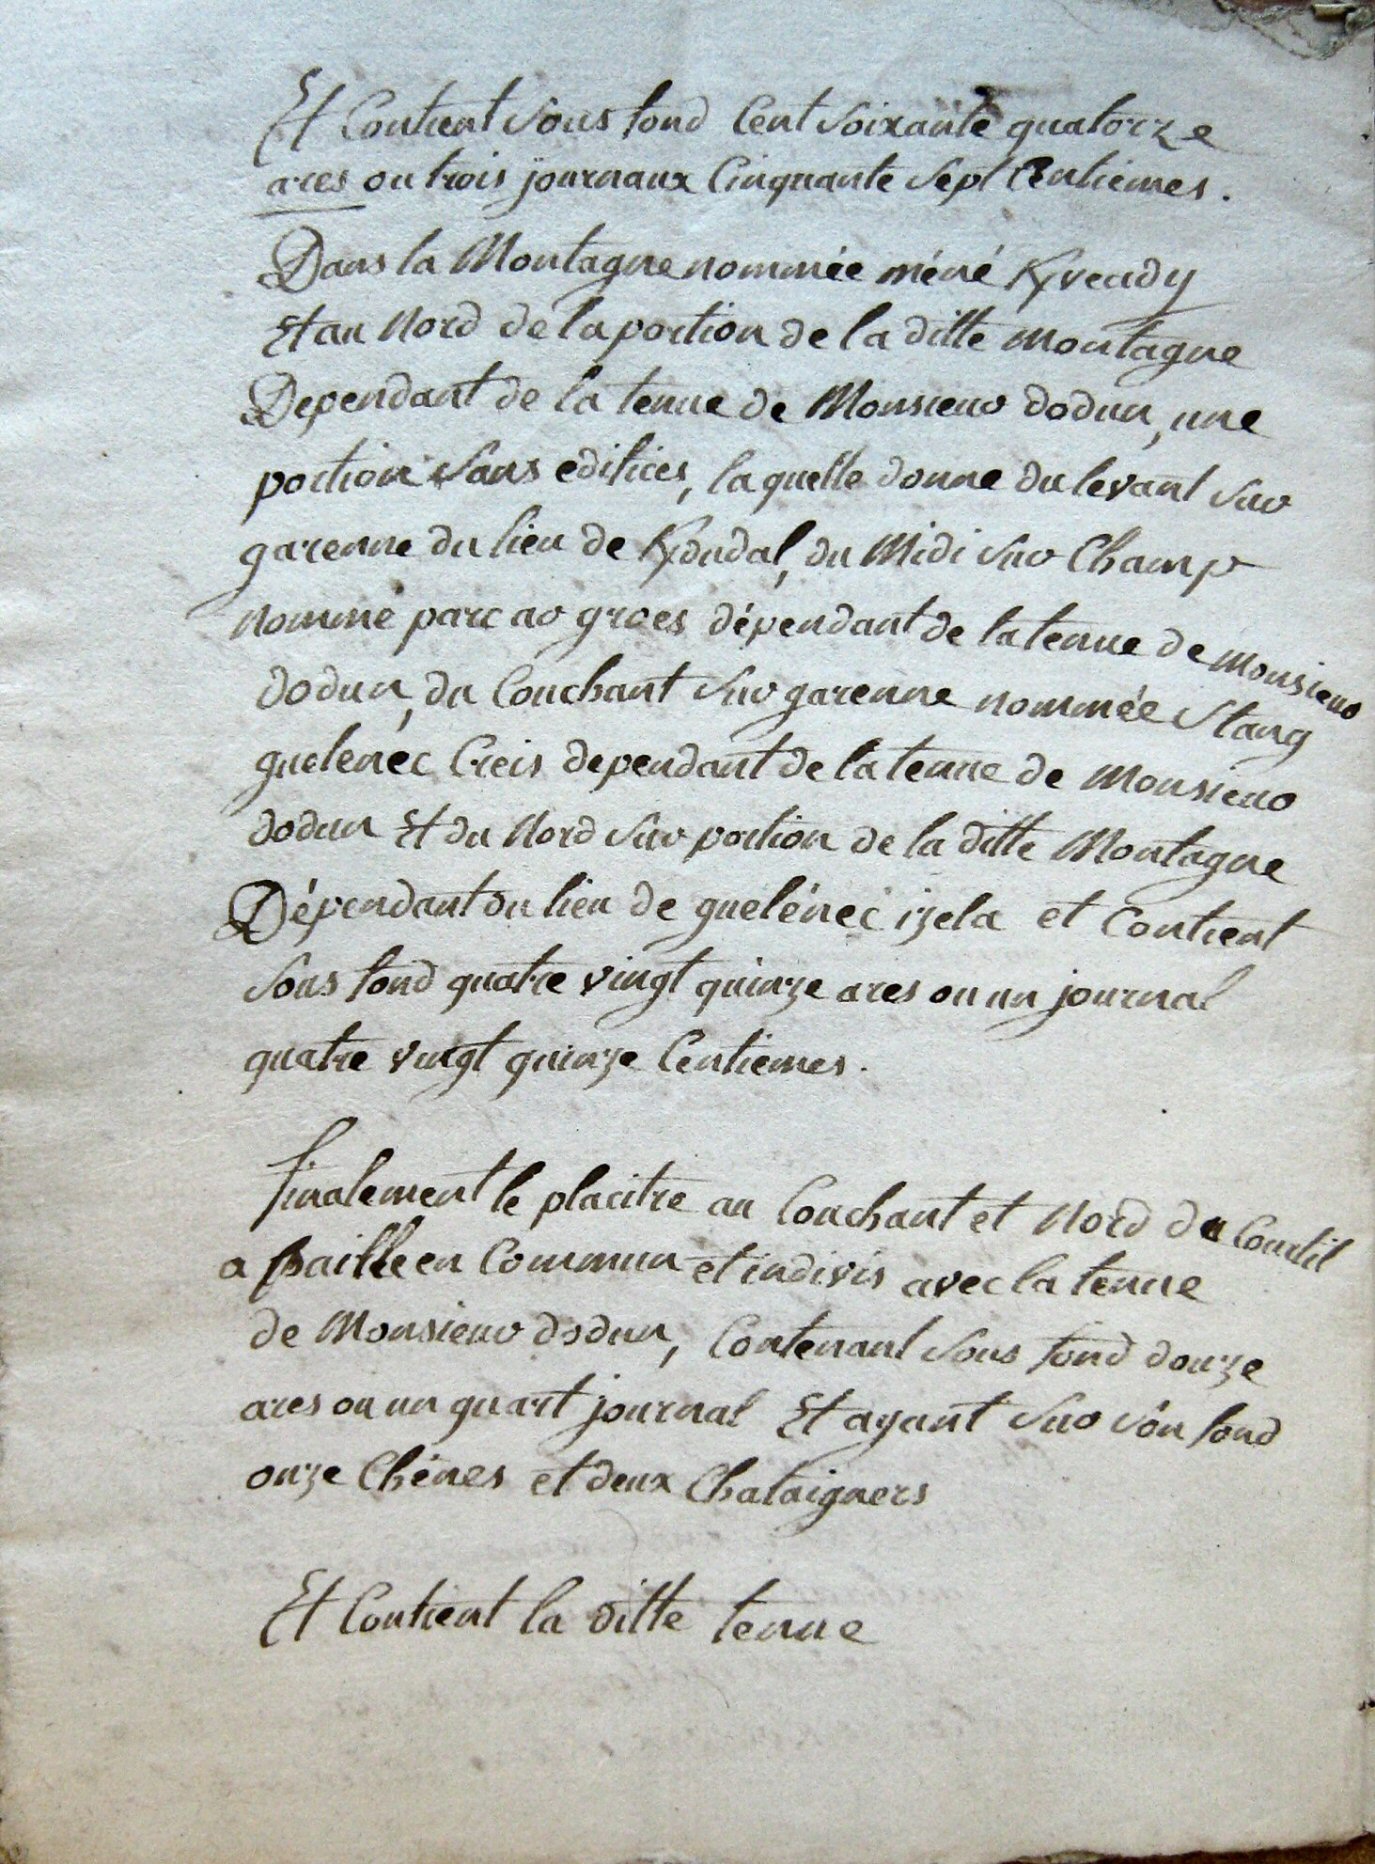 Et Contient sous fond Cent soixante quatorze
ares ou trois journaux Cinquante sept Centiemes.
Dans la Montagne nommée méné Kyveady
Et au Nord de la portion de la ditte Montagne
Dependant de la tenue de Monsieur dodun, une
portion sans edifices, laquelle donne du levant sur
garenne du lieu de Kydudal, du Midi sur Champ
nommé parc ar groes dépendant de la tenue de Monsieur
dodun, du Couchant sur garenne nommée Stang
guelenec Creis dependant de la tenue de Monsieur
dodun Et du Nord sur portion de la ditte Montagne
Dépendant du lieu de guelénec izela et Contient
sous fond quatre vingt quinze ares ou un journal
quatre vingt quinze Centiemes.
finalement le placitre au Couchant et Nord du Courtil
a paille en Commun et indivis avec la tenue
de Monsieur dodun, Contenant sous fond douze
ares ou un quart journal Et ayant sur son fond
onze Chênes et deux Chataigners
Et Contient la ditte tenue